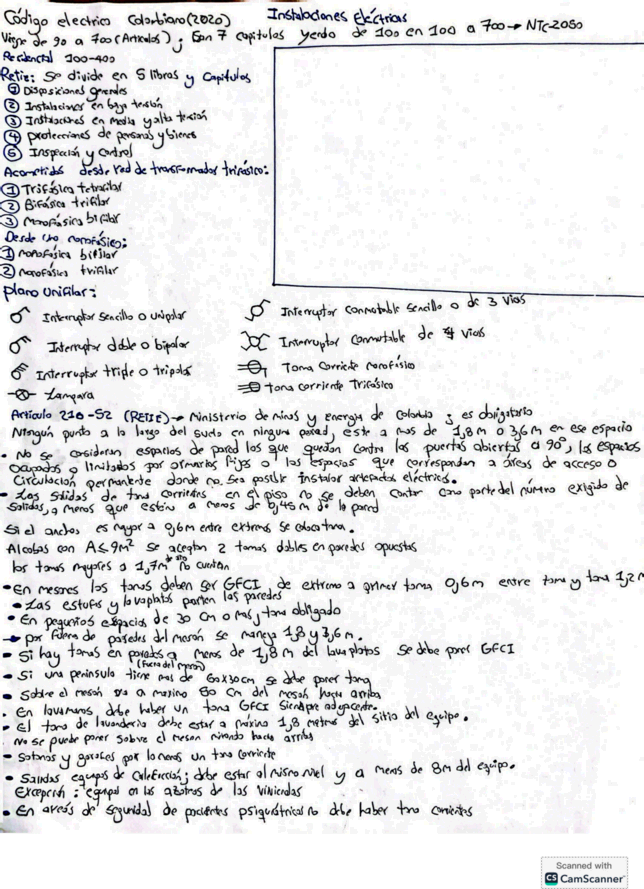 Código electrico Colombiano (2020)
Instalaciones Eléctricas
Viene de 90 a 700 (Articulos); Son 7 capitulos yendo de 100 en 100 a 700 → NTC-2050
Residencial 100-400
Retie: Se divide en 5 libros y Capitulos
① Disposiciones generales
② Instalaciones en baja tensión
③ Instalaciones en media y alta tensión
④ protecciones de personas y bienes
⑤ Inspección y control
Acometidas desde red de transformador trifásico:
① Trifásica tetrafilar
② Bifásica trifilar
③ Monofásica bifilar
Desde uno monofásico:
① monofásica bifilar
② monofásica trifilar
Plano Unifilar:
Interruptor Sencillo o Unipolar
Interruptor conmutable Sencillo o de 3 vias
Interruptor doble o bipolar
Interruptor conmutable de 4 vias
Interruptor triple o tripolar
Toma Corriente monofásico
Lampara
toma corriente Trifásico
Articulo 210-52 (RETIE) → Ministerio de minas y energia de Colombia; es obligatorio
Ningún punto a lo largo del suelo en ninguna pared, este a mas de 1,8m o 3,6m en ese espacio
• No se consideran espacios de pared los que quedan contra las puertas abiertas a 90°, los espacios
Ocupados o limitados por armarios fijos o los espacios que corresponden a áreas de acceso o
Circulación permanente donde no sea posible instalar artefactos eléctricos.
• Las salidas de toma corrientes en el piso no se deben contar como parte del número exigido de
salidas, a menos que estén a menos de 0,45m de la pared
Si el ancho es mayor a 0,6m entre extremos se coloca toma.
Alcobas con A≤9m² se aceptan 2 tomas dobles en paredes opuestas
los tomas mayores a 1,7m no cuentan
• En mesones los tomas deben ser GFCI, de extremo a primer toma 0,6m entre toma y toma 1,2m
• Las estufas y lavaplatos parten las paredes
• En pequeños espacios de 30 cm o mas, toma obligado
→ por fuera de paredes del mesón se maneja 1,8 y 3,6m.
• Si hay tomas en paredes a menos de 1,8m del lavaplatos se debe poner GFCI
(Fuera del mesón)
• Si una peninsula tiene mas de 60x30cm se debe poner toma
• Sobre el mesón va a maximo 50 cm del mesón hacia arriba
• En lavamanos debe haber un toma GFCI siempre adyacente.
• El toma de lavanderia debe estar a máximo 1,8 metros del sitio del equipo.
No se puede poner sobre el meson mirando hacia arriba
• Sotanos y garajes por lo menos un toma corriente
• Salidas equipos de calefacción; debe estar al mismo nivel y a menos de 8m del equipo.
Excepción: equipos en las azoteas de las viviendas
• En areas de seguridad de pacientes psiquiátricas no debe haber toma corrientes
Scanned with
CS CamScanner